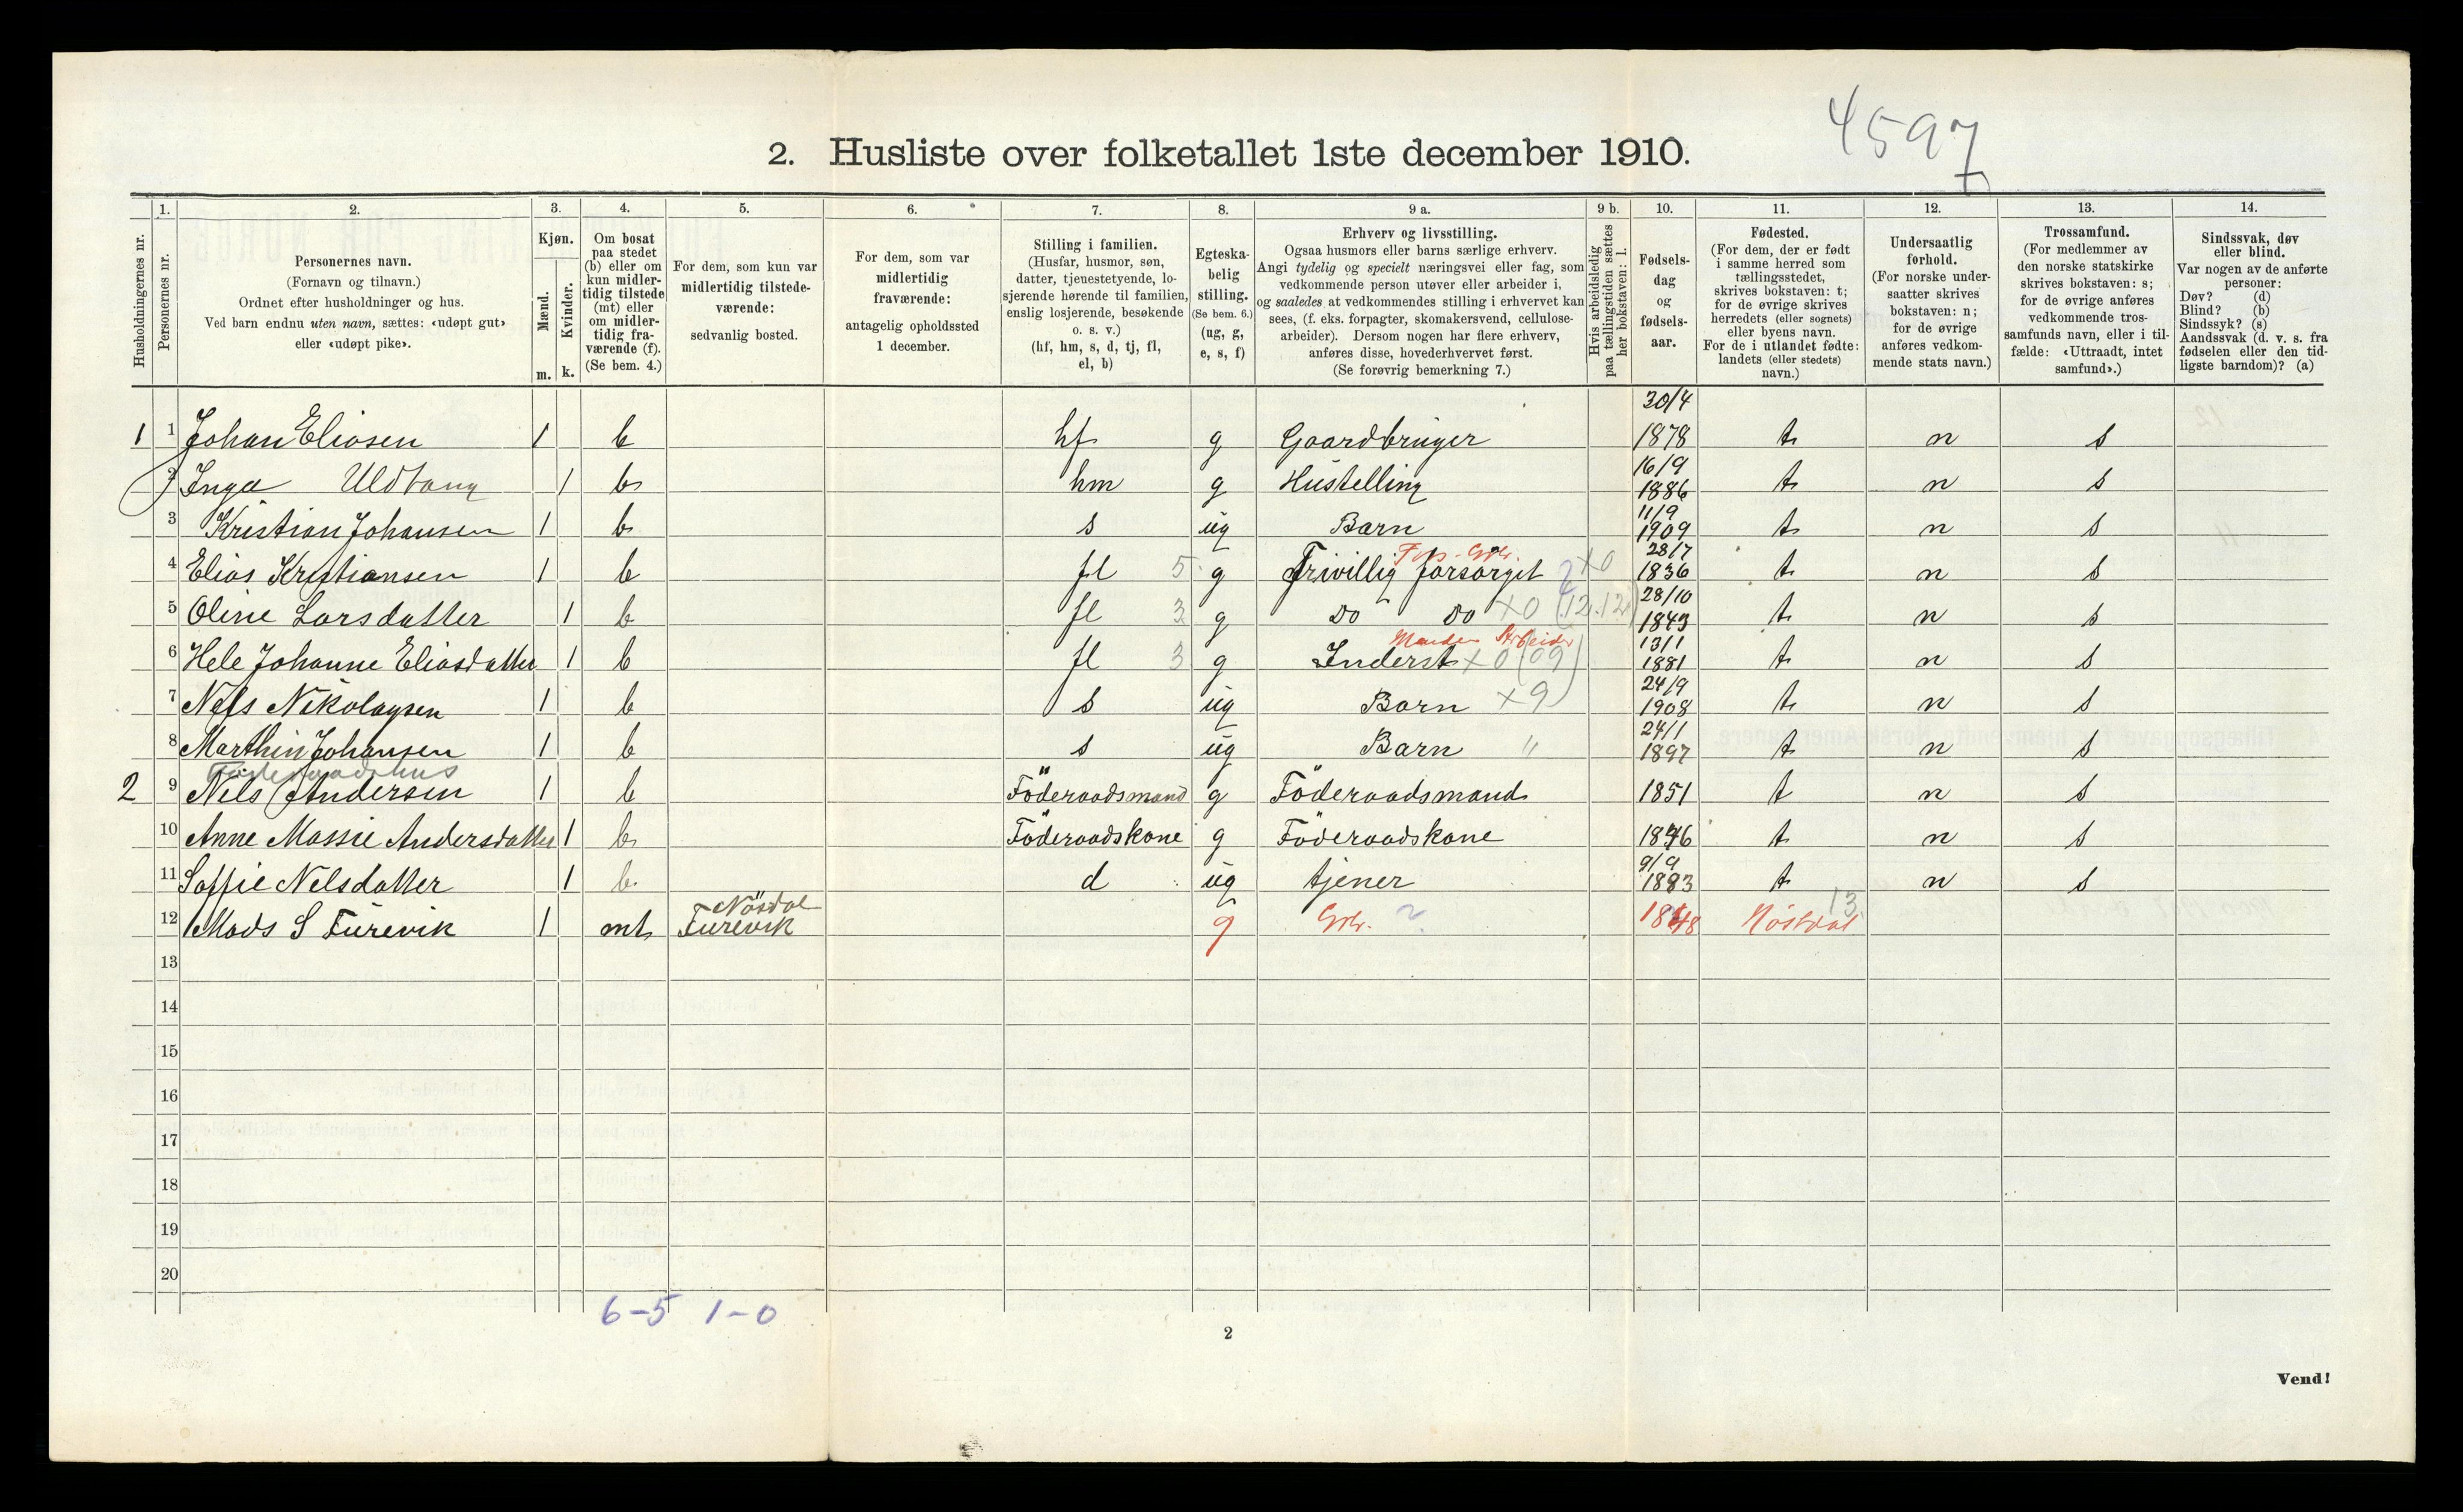 4597
2. Husliste over folketallet 1ste december 1910.
Husholdningernes nr.
1.
Personernes nr.
2.
Personernes navn.
(Fornavn og tilnavn.)
Ordnet efter husholdninger og hus.
Ved barn endnu uten navn, sættes: «udøpt gut»
eller «udøpt pike».
3.
Kjøn.
Mænd.
Kvinder.
m. k.
4.
Om bosat
paa stedet
(b) eller om
kun midler-
tidig tilstede
(mt) eller
om midler-
tidig fra-
værende (f).
(Se bem. 4.)
5.
For dem, som kun var
midlertidig tilstede-
værende:
sedvanlig bosted.
6.
For dem, som var
midlertidig
fraværende:
antagelig opholdssted
1 december.
7.
Stilling i familien.
(Husfar, husmor, søn,
datter, tjenestetyende, lo-
sjerende hørende til familien,
enslig losjerende, besøkende
o. s. v.)
(hf, hm, s, d, tj, fl,
el, b)
8.
Egteska-
belig
stilling.
(Se bem. 6.)
(ug, g,
e, s, f)
9 a.
Erhverv og livsstilling.
Ogsaa husmors eller barns særlige erhverv.
Angi tydelig og specielt næringsvei eller fag, som
vedkommende person utøver eller arbeider i,
og saaledes at vedkommendes stilling i erhvervet kan
sees, (f. eks. forpagter, skomakersvend, cellulose-
arbeider). Dersom nogen har flere erhverv,
anføres disse, hovederhvervet først.
(Se forøvrig bemerkning 7.)
9 b.
Hvis arbeidsledig
paa tællingstiden sættes
her bokstaven: l.
10.
Fødsels-
dag
og
fødsels-
aar.
11.
Fødested.
(For dem, der er født
i samme herred som
tællingsstedet,
skrives bokstaven: t;
for de øvrige skrives
herredets (eller sognets)
eller byens navn.
For de i utlandet fødte:
landets (eller stedets)
navn.)
12.
Undersaatlig
forhold.
(For norske under-
saatter skrives
bokstaven: n;
for de øvrige
anføres vedkom-
mende stats navn.)
13.
Trossamfund.
(For medlemmer av
den norske statskirke
skrives bokstaven: s;
for de øvrige anføres
vedkommende tros-
samfunds navn, eller i til-
fælde: «Uttraadt, intet
samfund».)
14.
Sindssvak, døv
eller blind.
Var nogen av de anførte
personer:
Døv? (d)
Blind? (b)
Sindssyk? (s)
Aandssvak (d. v. s. fra
fødselen eller den tid-
ligste barndom)? (a)
1 1 Johan Eliasen 1 b hf g Gaardbruger 30/4 1878 t n s
2 Inga Uldtang 1 b hm g Hustelling 16/9 1886 t n s
3 Kristian Johansen 1 b s ug Barn 11/9 1909 t n s
4 Elias Kristiansen 1 b fl 5 g Frivillig forsørget x0 28/7 1836 t n s
5 Oline Larsdatter 1 b fl 3 g do do x0 (12.12) 28/10 1843 t n s
6 Hele Johanne Eliasdatter 1 b fl 3 g Inderst x0 (09) 13/1 1881 t n s
7 Nels Nikolaysen 1 b s ug Barn x9 24/9 1908 t n s
8 Marthin Johansen 1 b s ug Barn " 24/1 1897 t n s
Föderaadshus
2 9 Nels Andersen 1 b Föderaadsmand g Föderaadsmand 1851 t n s
10 Anne Massie Andersdatter 1 b Föderaadskone g Föderaadskone 1846 t n s
11 Soffie Nelsdatter 1 b d ug tjener 9/9 1883 t n s
12 Mads S Furevik 1 mt Nösdal Furevik g Gbr. ? 1848 Nöstdal 13
13
14
15
16
17
18
19
20
6-5 1-0
2
Vend!